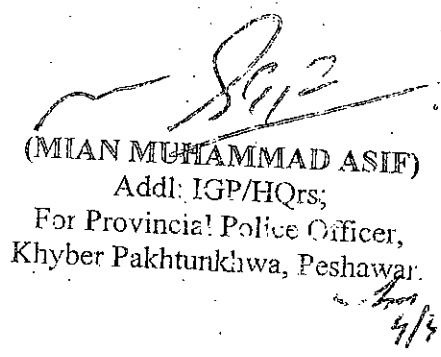 (MIAN MUHAMMAD ASIF)
Addl: IGP/HQrs;
For Provincial Police Officer,
Khyber Pakhtunkhwa, Peshawar.